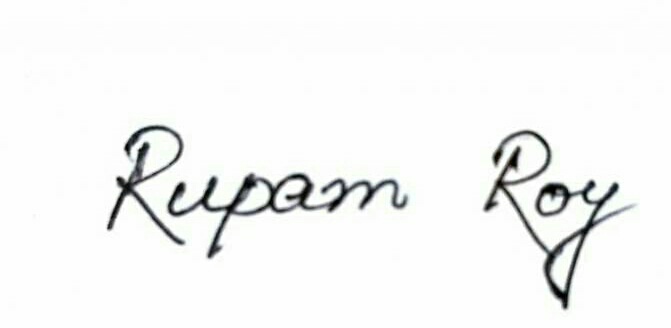 Rupam Roy